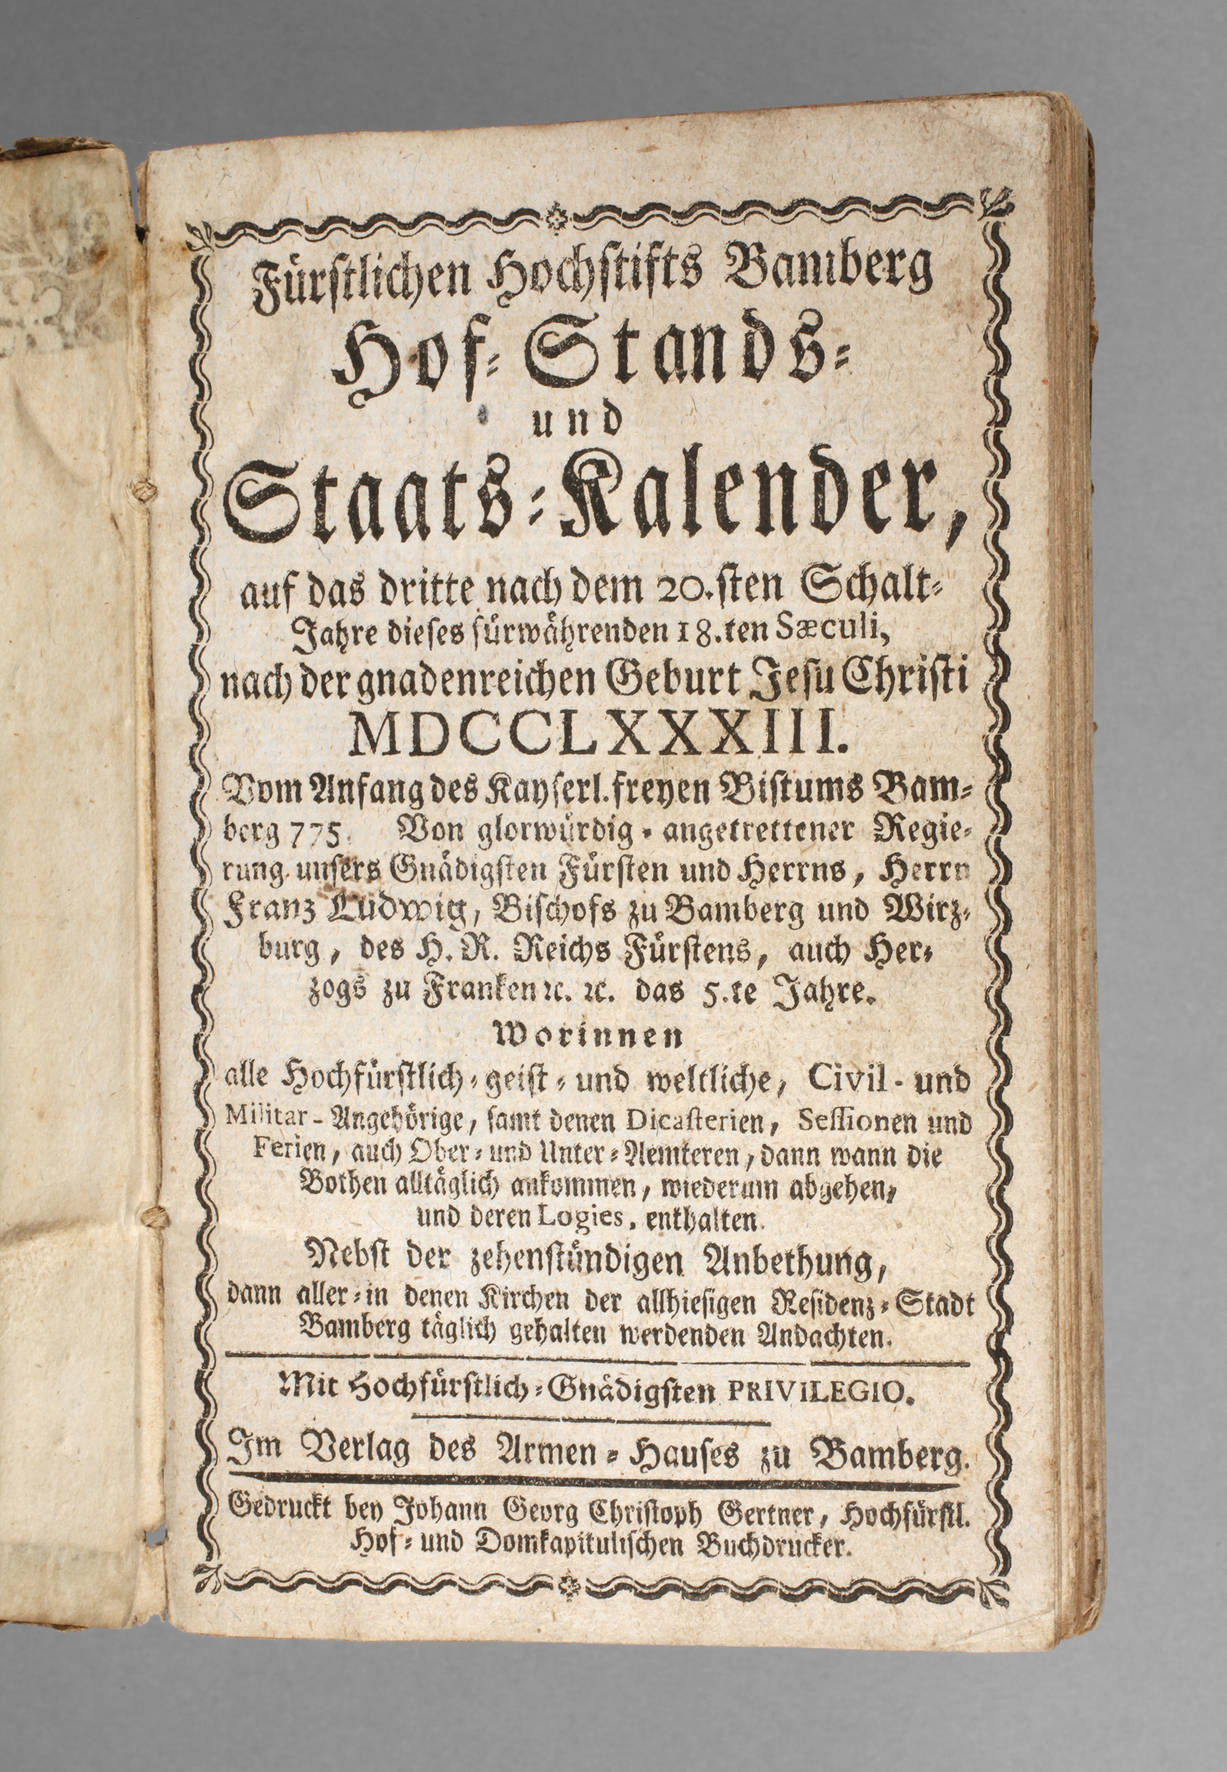 Fürstlichen Hochstifts Bamberg
Hof⸗Stands⸗
und
Staats⸗Kalender,
auf das dritte nach dem 20.sten Schalt⸗
Jahre dieses fürwährenden 18.ten Sæculi,
nach der gnadenreichen Geburt Jesu Christi
MDCCLXXXIII.
Vom Anfang des Kayserl. freyen Bistums Bam⸗
berg 775. Von glorwürdig⸗angetrettener Regie⸗
rung unsers Gnädigsten Fürsten und Herrns, Herrn
Franz Ludwig, Bischofs zu Bamberg und Wirz⸗
burg, des H. R. Reichs Fürstens, auch Her⸗
zogs zu Franken ꝛc. ꝛc. das 5.te Jahre.
Worinnen
alle Hochfürstlich⸗geist⸗und weltliche, Civil- und
Militar-Angehörige, samt denen Dicasterien, Sessionen und
Ferien, auch Ober⸗und Unter⸗Aemteren, dann wann die
Bothen alltäglich ankommen, wiederum abgehen,
und deren Logies, enthalten.
Nebst der zehenstündigen Anbethung,
dann aller⸗in denen Kirchen der allhiesigen Residenz⸗Stadt
Bamberg täglich gehalten werdenden Andachten.
Mit Hochfürstlich⸗Gnädigsten PRIVILEGIO.
Im Verlag des Armen⸗Hauses zu Bamberg.
Gedruckt bey Johann Georg Christoph Gertner, Hochfürstl.
Hof⸗und Domkapitulischen Buchdrucker.